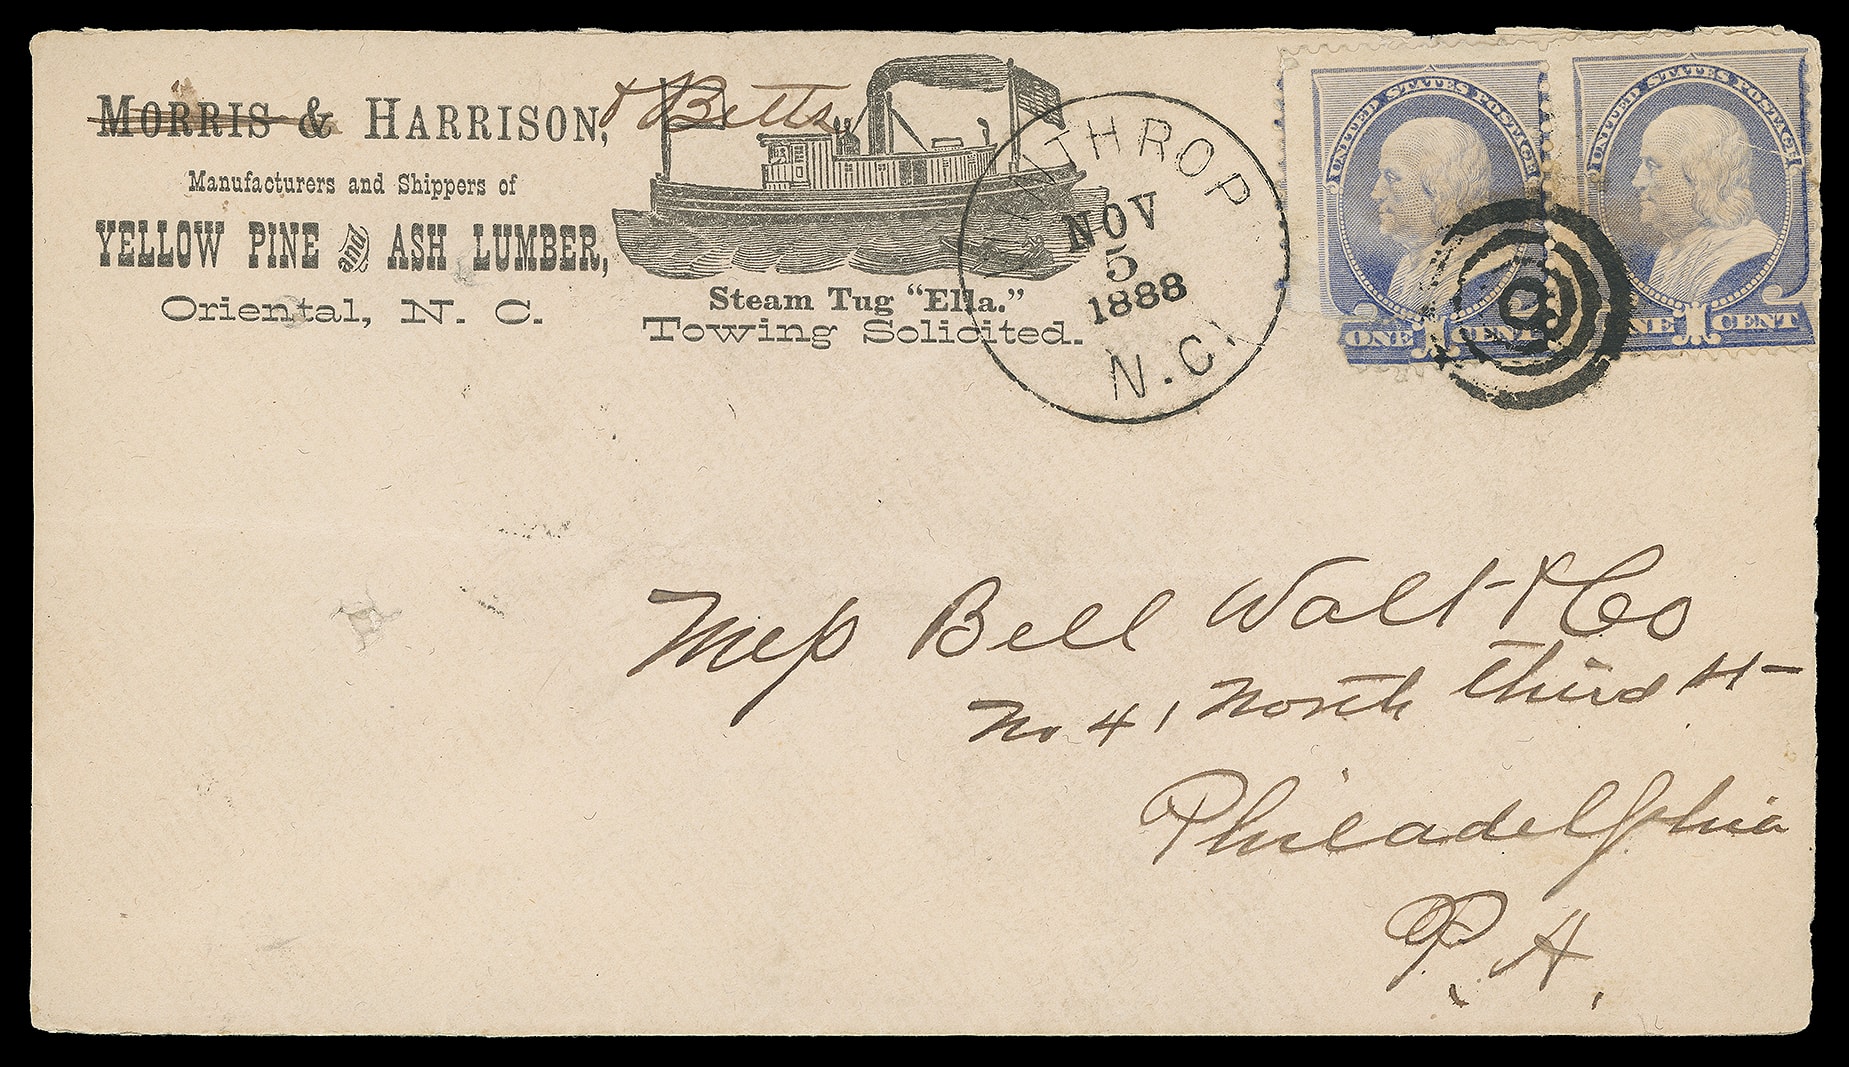 MORRIS & HARRISON, & Betts
Manufacturers and Shippers of
YELLOW PINE and ASH LUMBER,
Oriental, N. C.
Steam Tug "Ella."
Towing Solicited.
INTHROP
NOV
5
1888
N.C.
UNITED STATES POSTAGE
ONE 1 CENT
UNITED STATES POSTAGE
NE 1 CENT
Mess Bell Walt & Co
No 41 North Third St
Philadelphia
P.A.